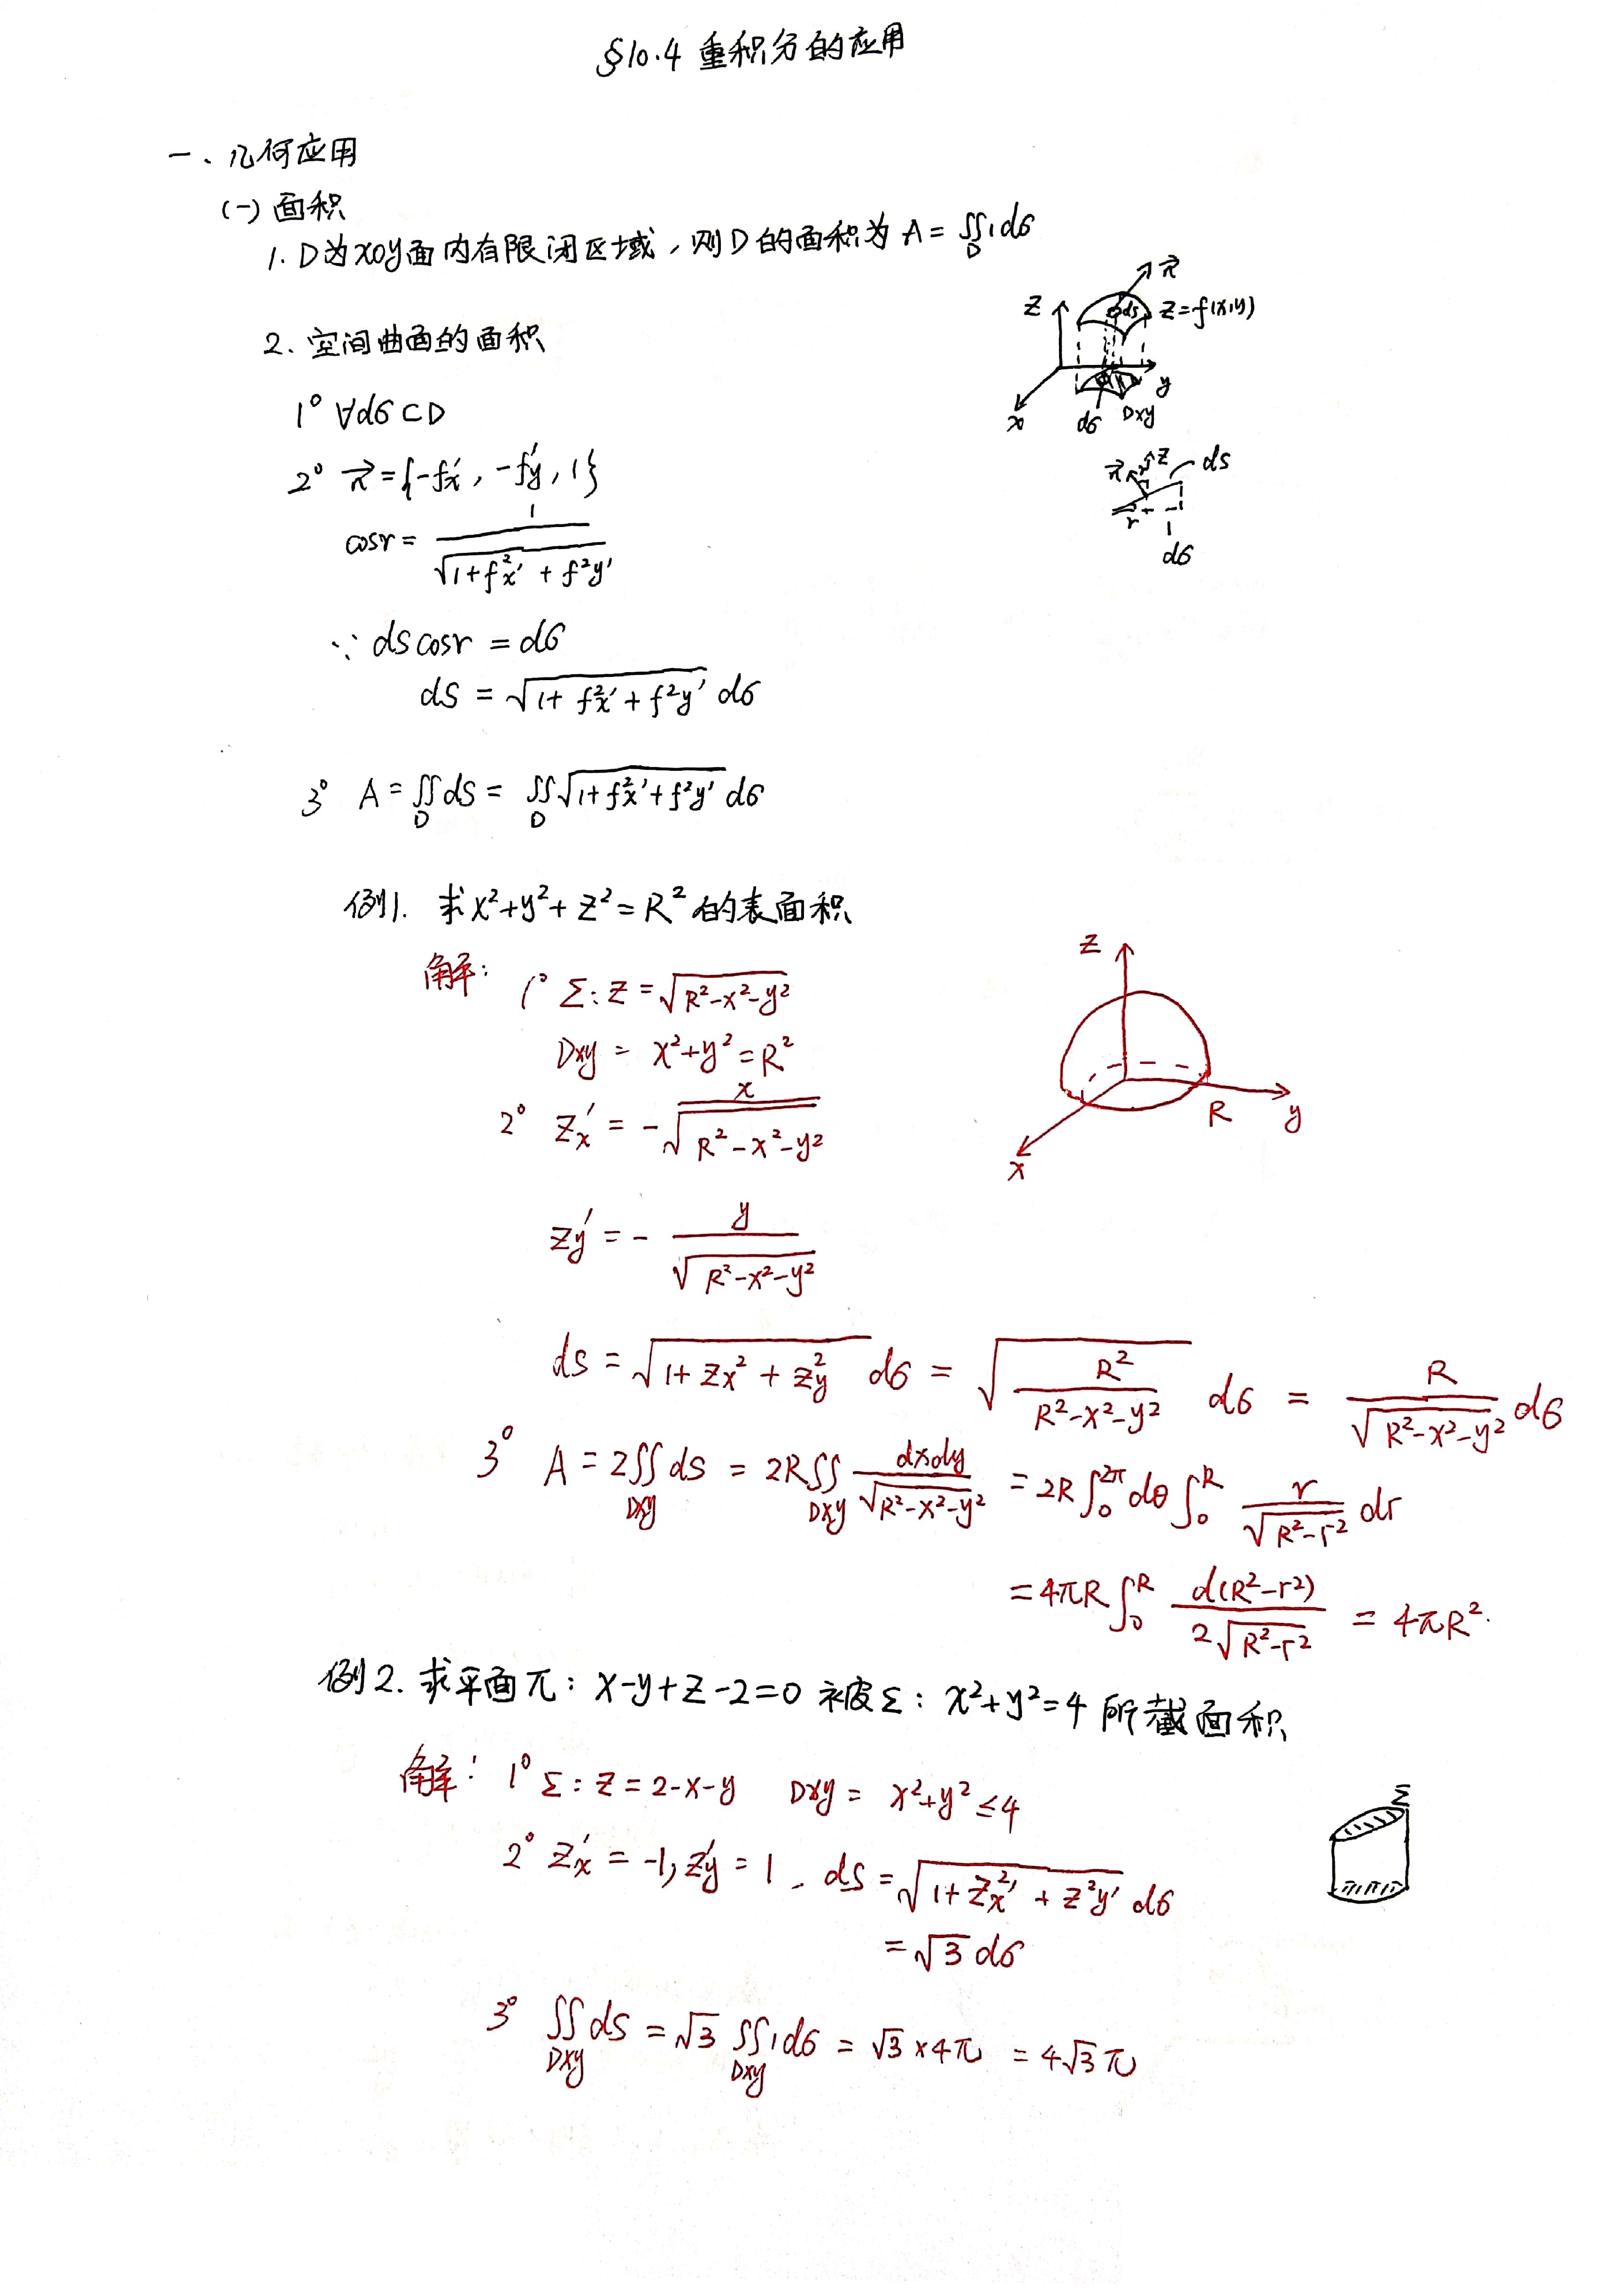 §10.4 重积分的应用
一、几何应用
(一) 面积
1. D为xoy面内有限闭区域，则D的面积为 A = ∬_D 1dσ
2. 空间曲面的面积
z n⃗ ds z=f(x,y)
x dσ Dxy y
1° ∀dσ⊂D
2° n⃗ = {-fx′, -fy′, 1}
n⃗ z ds
r
dσ
cosr = 1/√(1+f²x′ + f²y′)
∵ ds cosr = dσ
ds = √(1+ f²x′ + f²y′) dσ
3° A = ∬_D ds = ∬_D √(1+f²x′+f²y′) dσ
例1. 求x²+y²+z²=R²的表面积
解: 1° Σ: z = √(R²-x²-y²)
Dxy = x²+y²=R²
2° zx′ = -x/√(R²-x²-y²)
z
R y
x
zy′ = - y/√(R²-x²-y²)
ds = √(1+zx²+zy²) dσ = √(R²/(R²-x²-y²)) dσ = R/√(R²-x²-y²) dσ
3° A = 2∬_Dxy ds = 2R∬_Dxy dxdy/√(R²-x²-y²) = 2R∫₀^2π dθ ∫₀^R r/√(R²-r²) dr
= 4πR ∫₀^R d(R²-r²)/(2√(R²-r²)) = 4πR².
例2. 求平面π: x-y+z-2=0 被Σ: x²+y²=4 所截面积
解: 1° Σ: z=2-x-y Dxy = x²+y²≤4
Σ
2° zx′ = -1, zy′ = 1 . ds = √(1+z²x′ + z²y′) dσ
= √3 dσ
3° ∬_Dxy ds = √3 ∬_Dxy 1dσ = √3 × 4π = 4√3 π